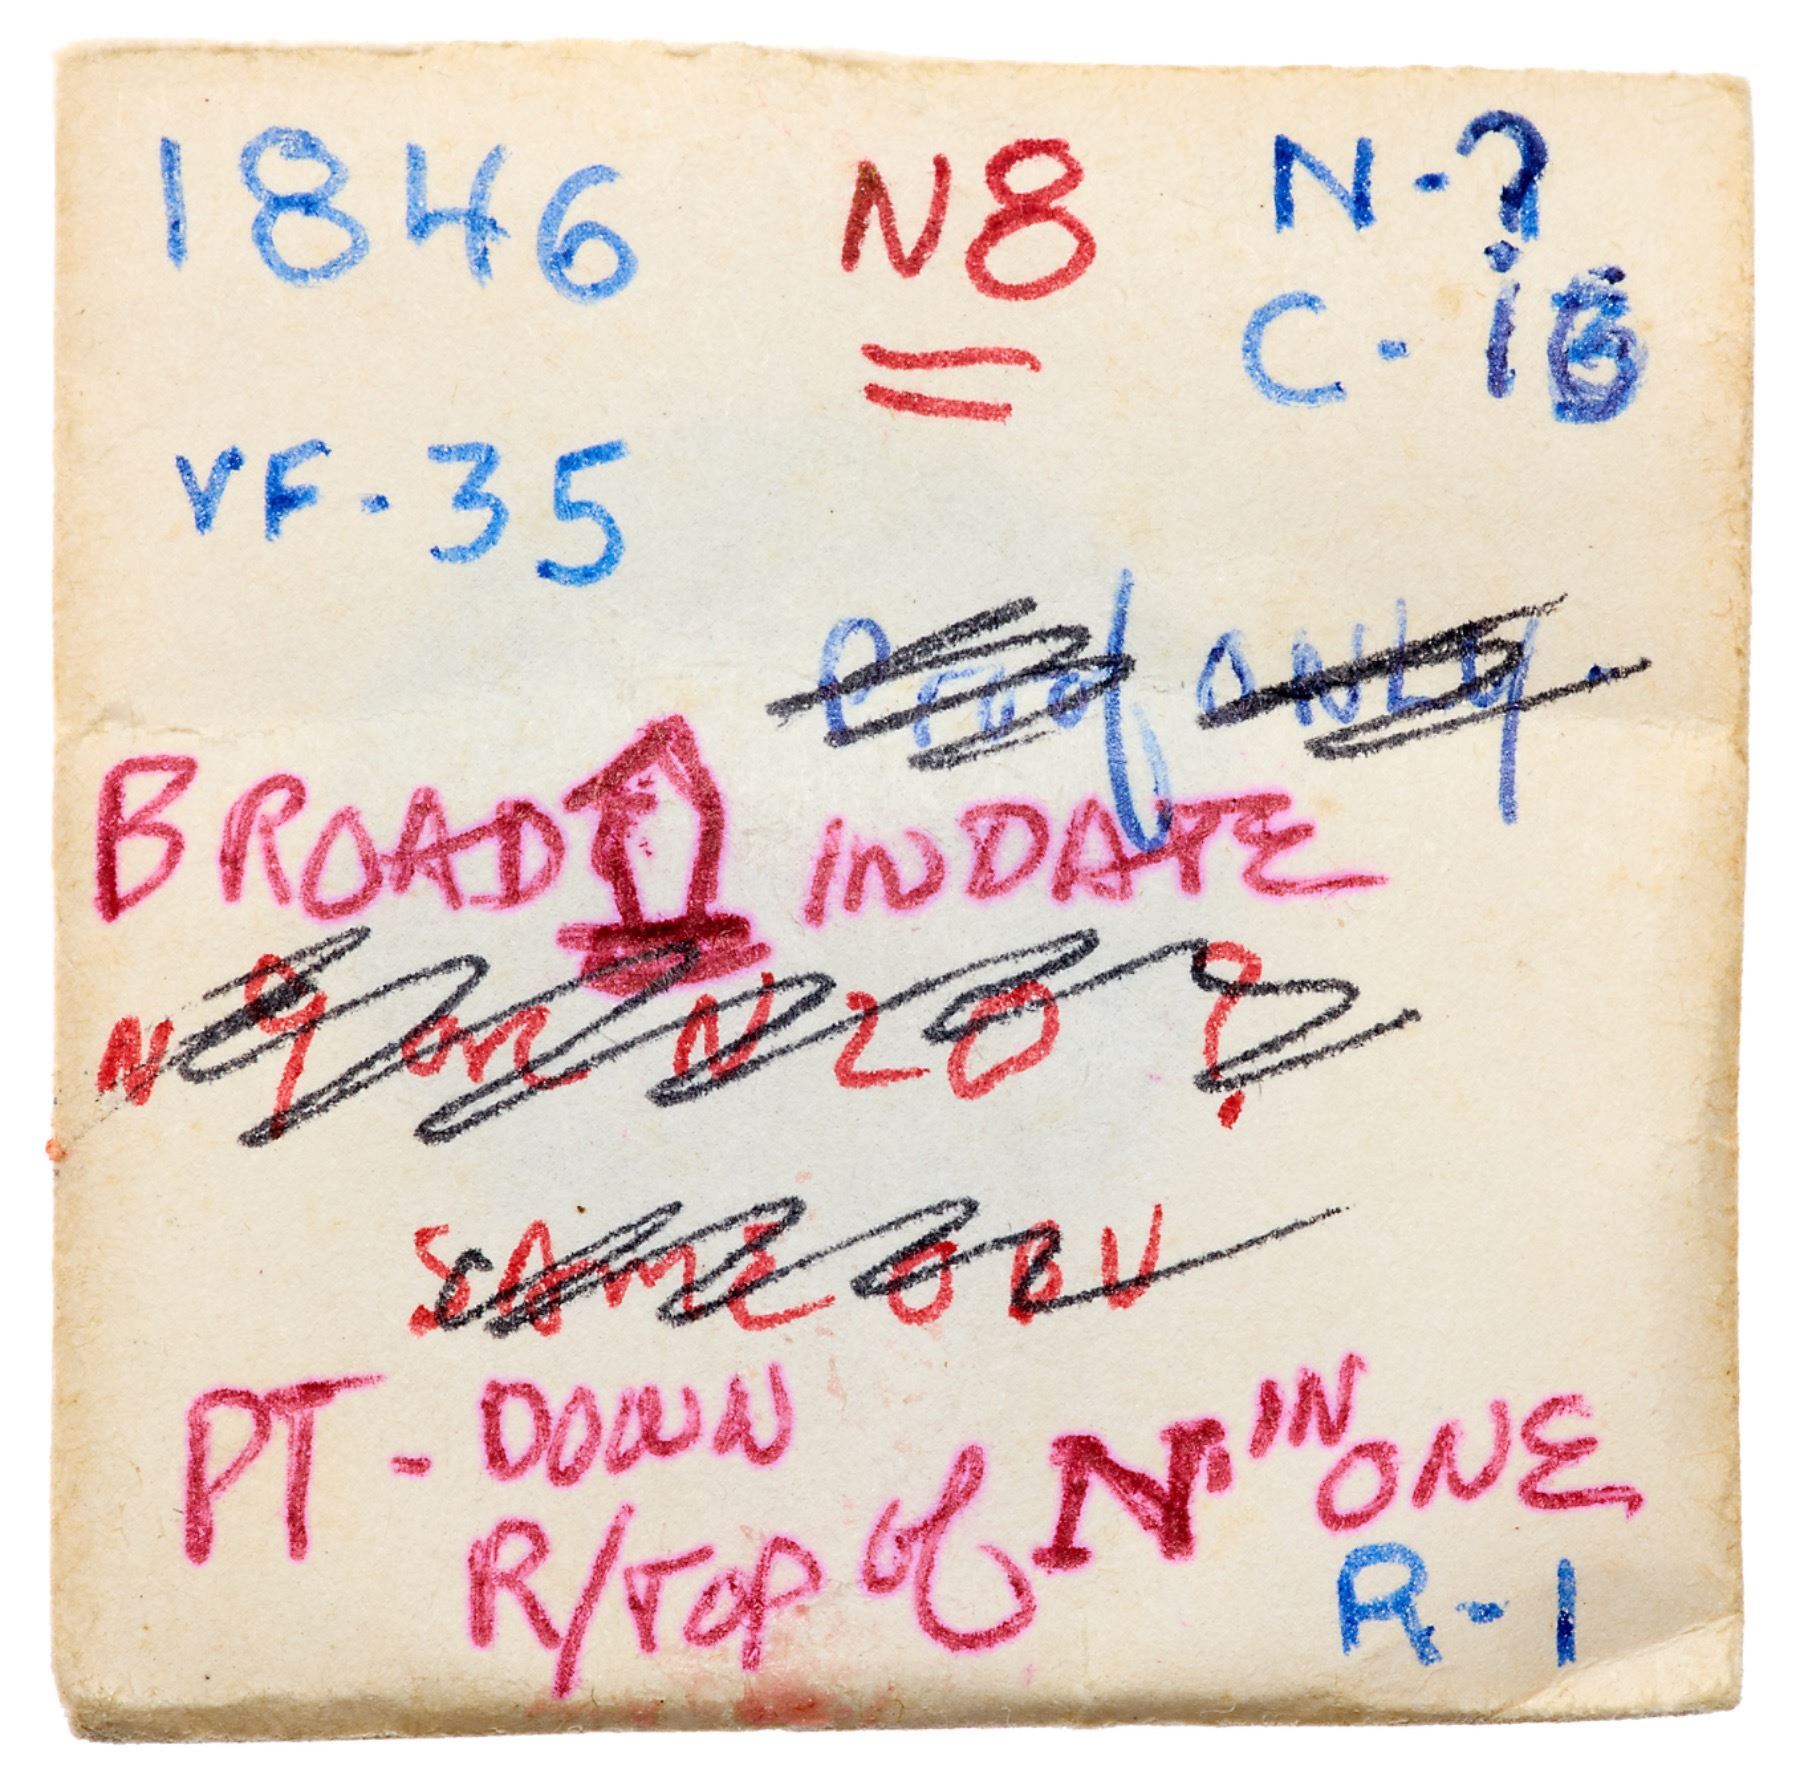 1846 N8 N-?
C-16
VF-35
Proof ONLY.
BROAD 1 IN DATE
N9 or N20 ?
SAME OBV
PT - DOWN IN
R/TOP of N ONE
R-1